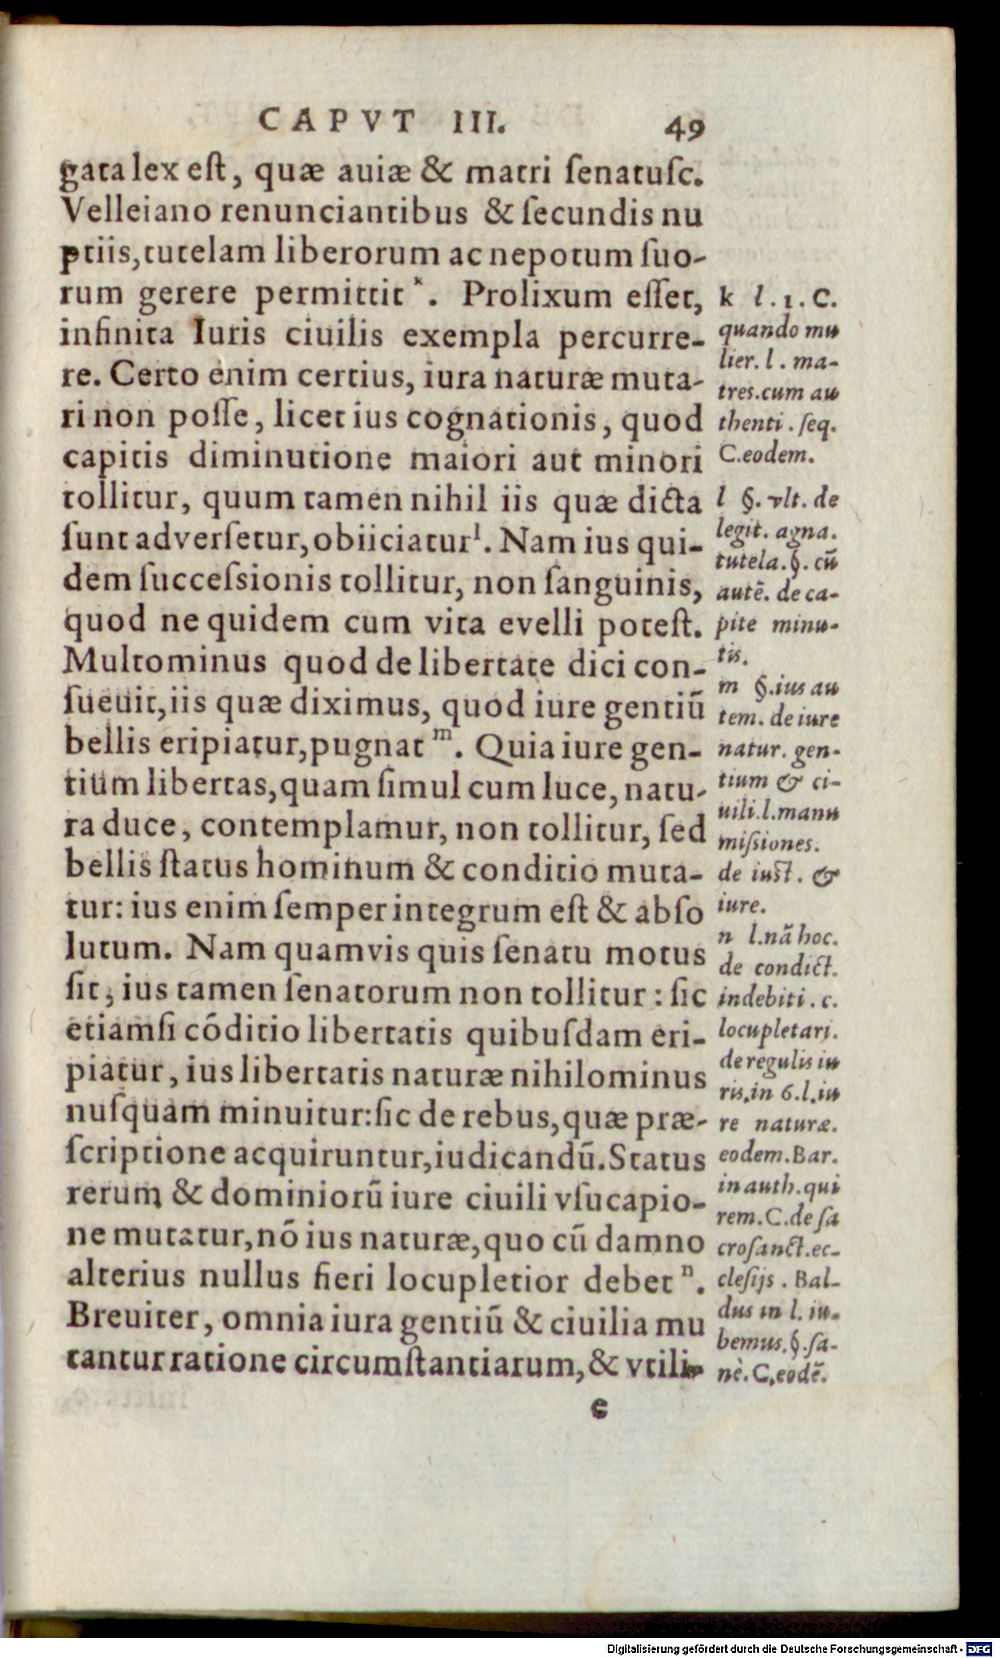 CAPVT III. 49
gata lex est, quæ auiæ & matri senatusc.
Velleiano renunciantibus & secundis nu
ptiis, tutelam liberorum ac nepotum suo-
rum gerere permittit ᵏ. Prolixum esset,
infinita Iuris ciuilis exempla percurre-
re. Certo enim certius, iura naturæ muta-
ri non posse, licet ius cognationis, quod
capitis diminutione maiori aut minori
tollitur, quum tamen nihil iis quæ dicta
sunt adversetur, obiiciatur ˡ. Nam ius qui-
dem successionis tollitur, non sanguinis,
quod ne quidem cum vita evelli potest.
Multominus quod de libertate dici con-
sueuit, iis quæ diximus, quod iure gentiū
bellis eripiatur, pugnat ᵐ. Quia iure gen-
tium libertas, quam simul cum luce, natu-
ra duce, contemplamur, non tollitur, sed
bellis status hominum & conditio muta-
tur: ius enim semper integrum est & abso
lutum. Nam quamvis quis senatu motus
sit, ius tamen senatorum non tollitur: sic
etiamsi cōditio libertatis quibusdam eri-
piatur, ius libertatis naturæ nihilominus
nusquam minuitur: sic de rebus, quæ præ-
scriptione acquiruntur, iudicandū. Status
rerum & dominiorū iure ciuili vsucapio-
ne mutatur, nō ius naturæ, quo cū damno
alterius nullus fieri locupletior debet ⁿ.
Breuiter, omnia iura gentiū & ciuilia mu
tantur ratione circumstantiarum, & vtili-
e
k l. 1. C.
quando mu
lier. l. ma-
tres. cum au
thenti. seq.
C. eodem.
l §. vlt. de
legit. agna.
tutela. §. cū
autē. de ca-
pite minu-
tis.
m §. ius au
tem. de iure
natur. gen-
tium & ci-
uili. l. manu
missiones.
de iust. &
iure.
n l. nā hoc.
de condict.
indebiti. c.
locupletari.
de regulis iu
ris. in 6. l. iu
re naturæ.
eodem. Bar.
in auth. qui
rem. C. de sa
crosanct. ec-
clesijs. Bal-
dus in l. iu-
bemus. §. sa-
nè. C. eodē.
Digitalisierung gefördert durch die Deutsche Forschungsgemeinschaft - DFG